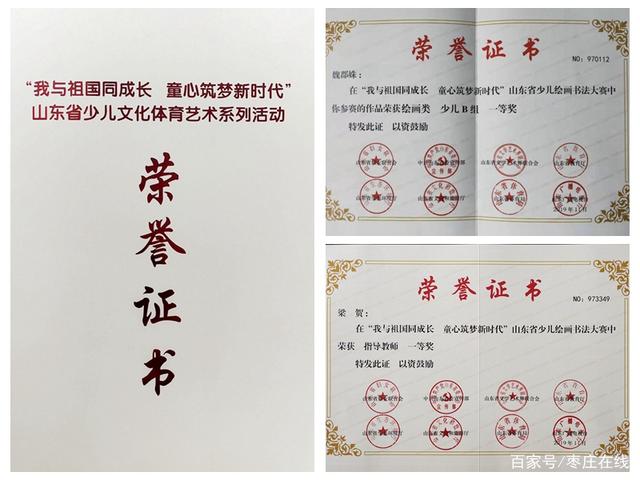 “我与祖国同成长 童心筑梦新时代”
山东省少儿文化体育艺术系列活动
荣誉证书
荣誉证书
NO：970112
魏郡姝：
在“我与祖国同成长 童心筑梦新时代”山东省少儿绘画书法大赛中
你参赛的作品荣获绘画类 少儿B组 一等奖
特发此证 以资鼓励
2019年11月
荣誉证书
NO：973349
梁 贺：
在“我与祖国同成长 童心筑梦新时代”山东省少儿绘画书法大赛中
荣获 指导教师 一等奖
特发此证 以资鼓励
百家号/枣庄在线